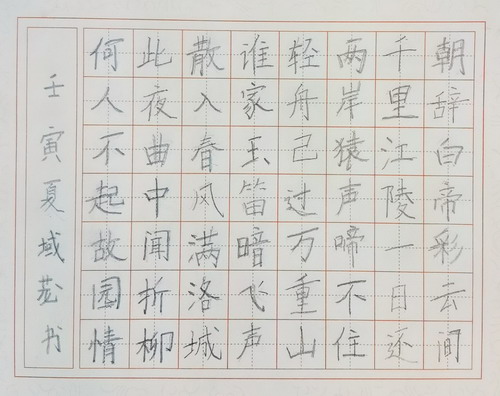 朝辞白帝彩云间
千里江陵一日还
两岸猿声啼不住
轻舟己过万重山
谁家玉笛暗飞声
散入春风满洛城
此夜曲中闻折柳
何人不起故园情
壬寅夏域茂书